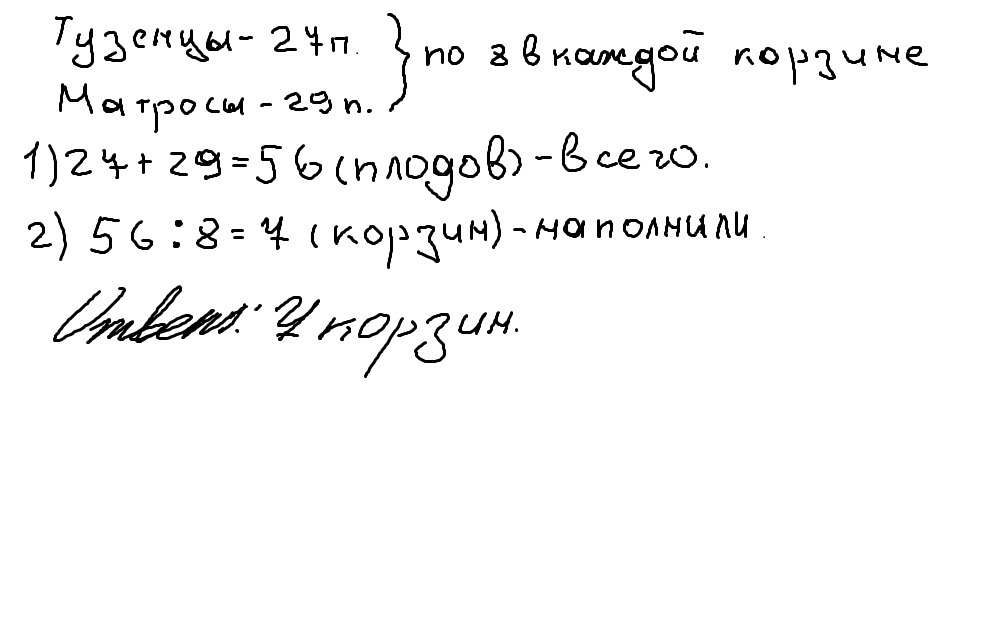 Тузенцы - 27п. } по 8 в каждой корзине
Матросы - 29п.
1) 27 + 29 = 56 (плодов) - всего.
2) 56 : 8 = 7 (корзин) - наполнили.
Ответ: 7 корзин.